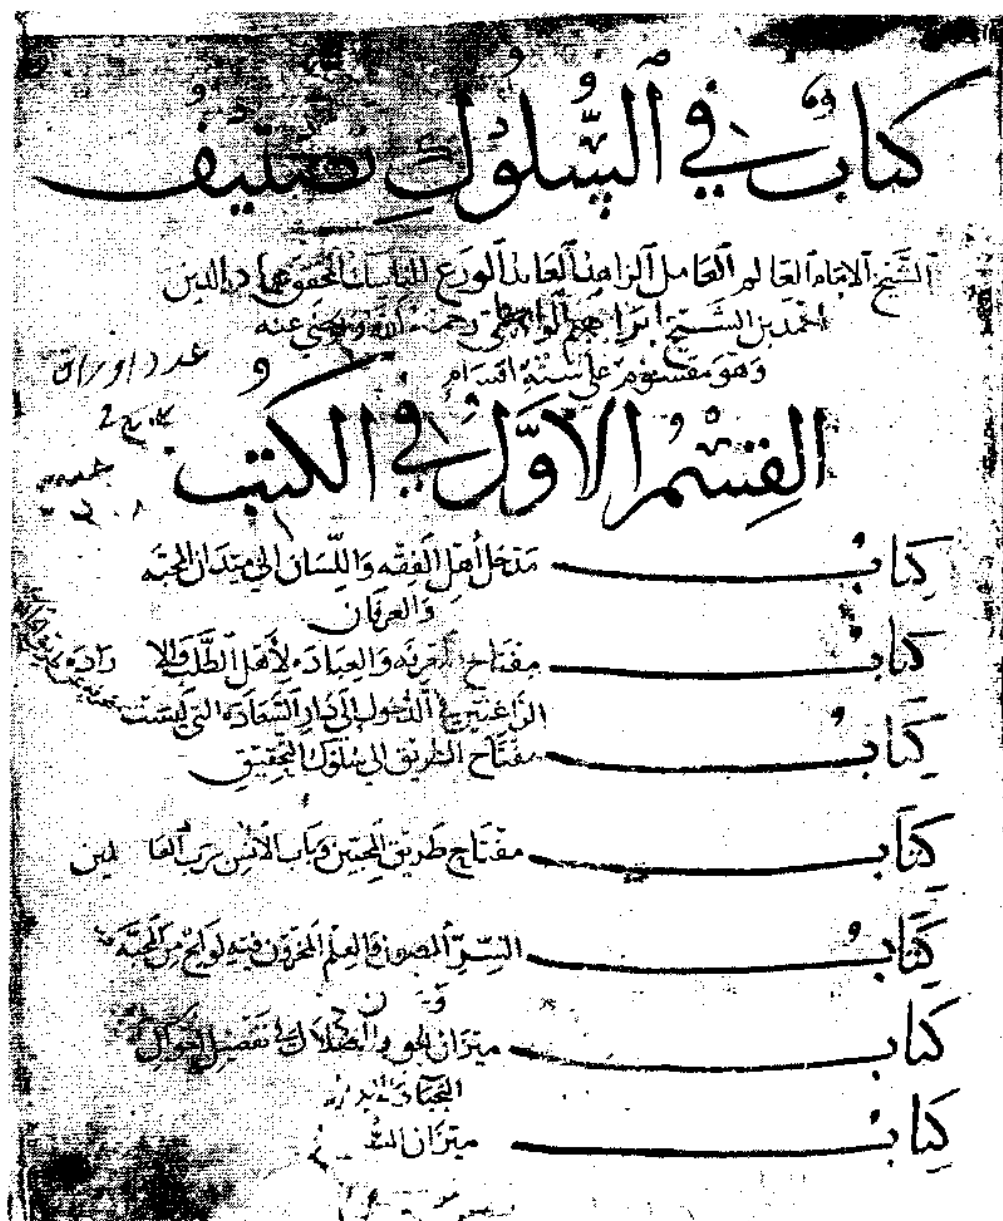 كتاب في السلوك تصنيف
الشيخ الإمام العالم العامل الزاهد العابد الورع المحقق عماد الدين
أحمد بن الشيخ إبراهيم الواسطي رحمه الله ورضي عنه
وهو مقسوم على ستة أقسام
عدد اوراق
القسم الأول في الكتب
كتاب مدخل أهل الفقه واللسان إلى ميدان المحبة
والعرفان
كتاب مفتاح والعبادة لأهل الطلب والإرادة
الراغبين في الدخول إلى دار السعادة التي ليست
كتاب مفتاح الطريق إلى سلوك التحقيق
كتاب مفتاح طريق المحبين وباب الأنس برب العالمين
كتاب السر المصون والعلم المخزون فيه لوائح من المحبة
كتاب ميزان الحق والضلال في تفصيل أحوال
كتاب ميزان